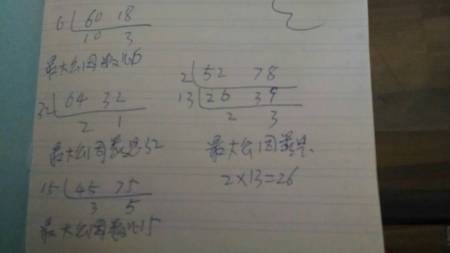 6 60 18
10 3
最大公因数是6
32 64 32
2 1
最大公因数是32
15 45 75
3 5
最大公因数是15
2 52 78
13 26 39
2 3
最大公因数是
2×13=26